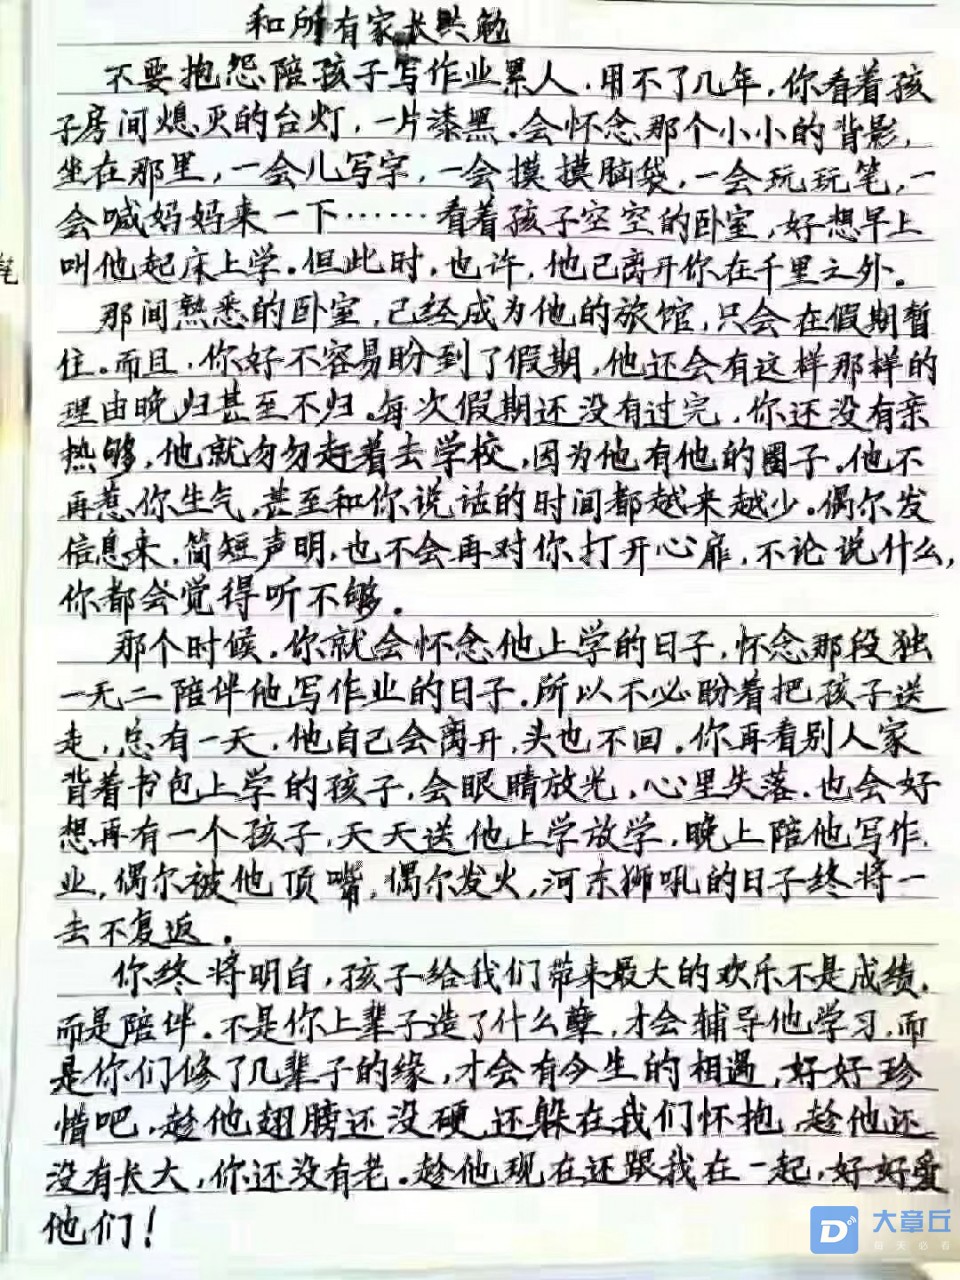 和所有家长共勉
不要抱怨陪孩子写作业累人.用不了几年,你看着孩
子房间熄灭的台灯,一片漆黑.会怀念那个小小的背影,
坐在那里,一会儿写字,一会摸摸脑袋,一会玩玩笔,一
会喊妈妈来一下……看着孩子空空的卧室,好想早上
叫他起床上学。但此时,也许,他已离开你在千里之外。
那间熟悉的卧室,已经成为他的旅馆,只会在假期暂
住。而且,你好不容易盼到了假期,他还会有这样那样的
理由晚归甚至不归.每次假期还没有过完,你还没有亲
热够,他就匆匆赶着去学校,因为他有他的圈子.他不
再惹你生气,甚至和你说话的时间都越来越少。偶尔发
信息来,简短声明,也不会再对你打开心扉,不论说什么,
你都会觉得听不够。
那个时候,你就会怀念他上学的日子,怀念那段独
一无二陪伴他写作业的日子.所以不必盼着把孩子送
走,总有一天,他自己会离开,头也不回。你再看别人家
背着书包上学的孩子,会眼睛放光,心里失落.也会好
想再有一个孩子,天天送他上学放学,晚上陪他写作
业,偶尔被他顶嘴,偶尔发火,河东狮吼的日子终将一
去不复返。
你终将明白,孩子给我们带来最大的欢乐不是成绩,
而是陪伴。不是你上辈子造了什么孽,才会辅导他学习,而
是你们修了几辈子的缘,才会有今生的相遇,好好珍
惜吧,趁他翅膀还没硬,还躲在我们怀抱,趁他还
没有长大,你还没有老。趁他现在还跟我在一起,好好爱
他们!
大章丘